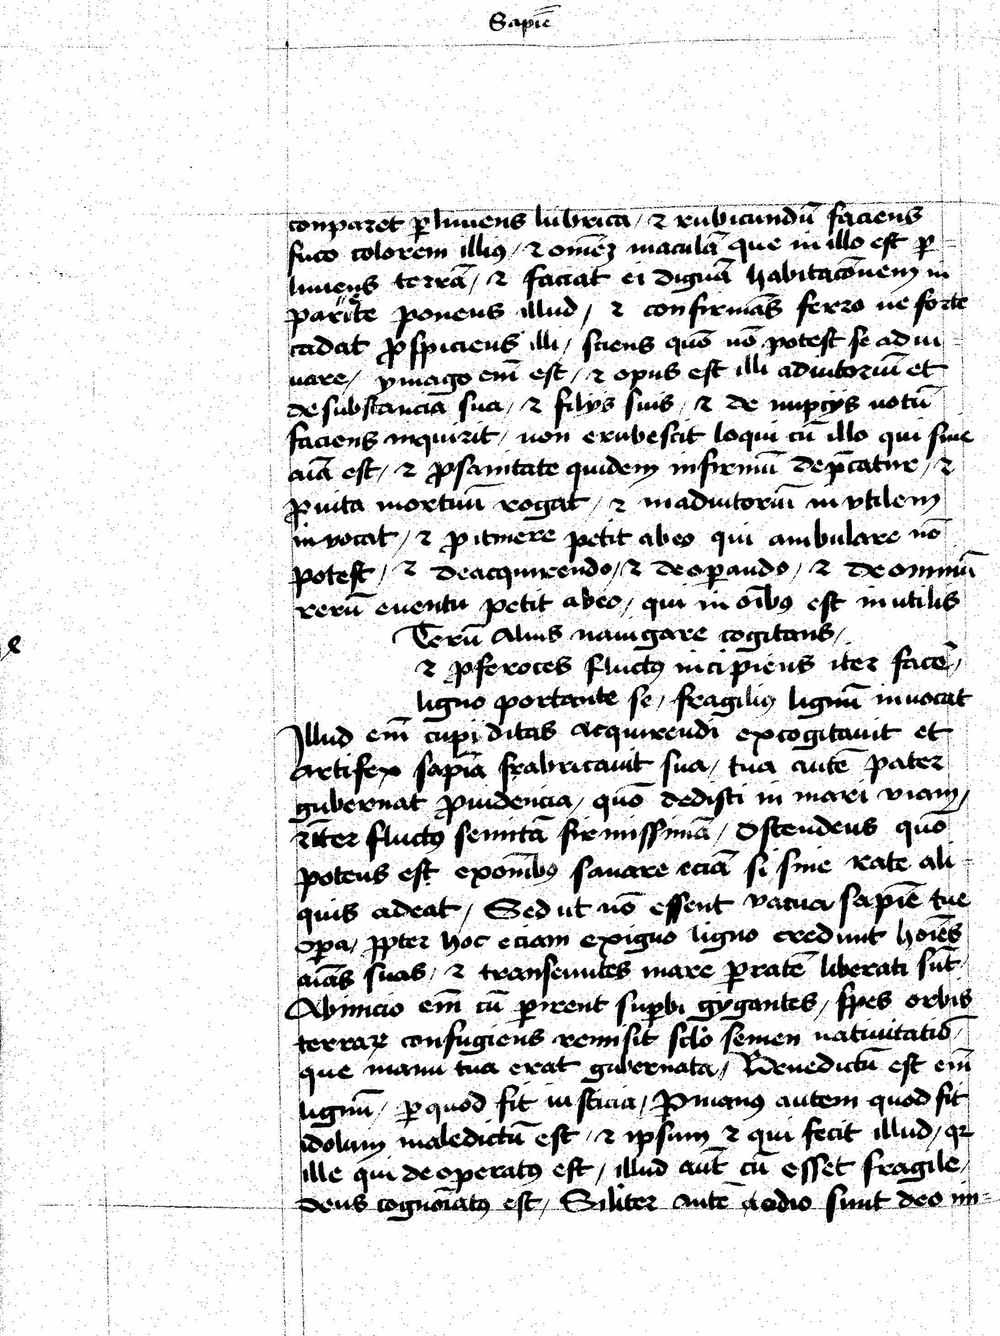 Sapiē
conparet ꝑ liniens lubrica / ⁊ rubicundū faciens
fuco colorem illiꝰ / ⁊ om̄eꝫ maculā que in illo est ꝑ-
liniens terrā / ⁊ faciat ei dignā habitacōnem in
pariete ponens illud / ⁊ confirmās ferro ne forte
cadat ꝓspiciens illi / sciens quō nō potest se adiu-
uare / ymago em̄ est / ⁊ opus est illi adiutoriū et
de substancia sua / ⁊ filijs suis / ⁊ de nupcijs uotū
faciens inquirit / non erubescit loqui cū illo qui sine
aīa est / ⁊ ꝓ sanitate quidem infirmū dep̄catur / ⁊
ꝓ uita mortuū rogat / ⁊ in adiutoriū in vtilem
in vocat / ⁊ ꝓ itinere petit ab eo qui ambulare nō
potest / ⁊ de acquirendo / ⁊ de oꝑando / ⁊ de omniū
rerū euentu petit ab eo / qui in oībꝰ est in utilis
Iterū Alius nauigare cogitans /
⁊ ꝑ feroces fluctꝰ incipiens iter facē /
ligno portante se / fragiliꝰ lignū inuocat
Illud em̄ cupiditas acquirendi excogitauit et
Artifex sapīa frabricauit sua / tua autē pater
gubernat ꝓuidencia / quō dedisti in mari viam /
⁊ iter fluctꝰ semitā firmissimā / Ostendens quō
potens est ex om̄ibꝰ sanare eciā si sine rate ali-
quis adeat / Sed ut nō essent vacua sapiē tue
oꝑa / ꝓpter hoc eciam exiguo ligno credunt hoīes
aīas suas / ⁊ transeuntes mare ꝑ ratē liberati sūt
Ab inicio em̄ cū ꝑirent suꝑbi gygantes / spes orbis
terraꝝ confugiens remisit sclō semen natiuitatis /
que manu tua erat gubernata / Benedictū est em̄
lignū / ꝑ quod fit iusticia / Ꝑ manꝰ autem quod fit
idolum maledictū est / ⁊ ipsum ⁊ qui fecit illud / qꝛ
ille qui de operatꝰ est / illud aūt cū esset fragile /
deus cognoīatꝰ est / Siliter autē aodio sunt deo im-